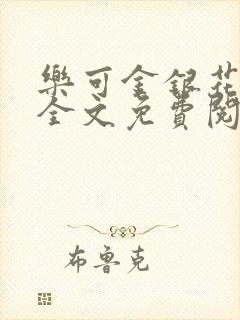 樂可金銀花
全文免費閱
布魯克